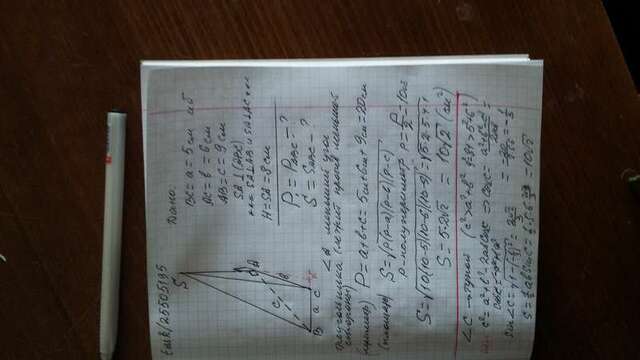 task/25505195
Дано:
S
BC = a = 5 см
AC = b = 6 см
AB = c = 9 см
SA ⊥ (ABC)
SA ⊥ AB и SA ⊥ AC
H = SA = 8 см
A
c
b
B a C
P = P_ABC = ?
S = S_ABC - ?
∠A меньший угол
треугольника (лежит против меньшей
стороны)
(периметр) P = a+b+c = 5см+6см+9см = 20см
(площадь) S = √p(p-a)(p-b)(p-c)
p - полупериметр p = P/2 = 10см
S = √10(10-5)(10-6)(10-9) = √5·2·5·4·1
S = 5·2√2 = 10√2 (см²)
∠C → тупой (c² > a²+b² 9²=81 > 5²+6²)
c² = a²+b²-2abCosC ⇒ CosC = (a²+b²-c²)/2ab =
= -20/(2·5·6) = -1/3
Sin∠C = √1-(-1/3)² = 2√2/3
S = ½ab SinC = ½·5·6·2√2/3 = 10√2